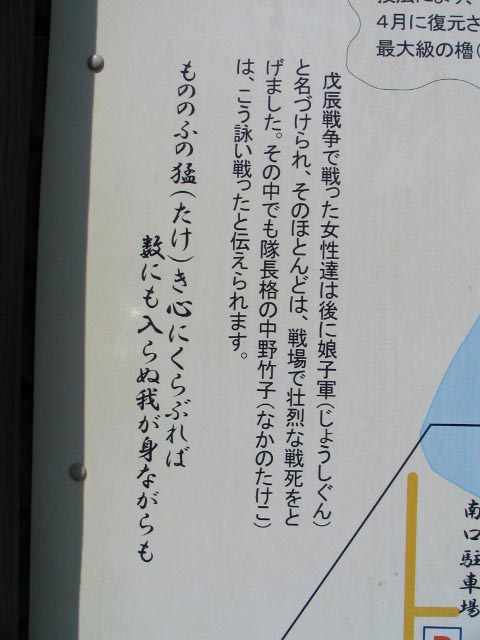 投法により、
4月に復元さ
最大級の櫓(
戊辰戦争で戦った女性達は後に娘子軍(じょうしぐん)
と名づけられ、そのほとんどは、戦場で壮烈な戦死をと
げました。その中でも隊長格の中野竹子(なかのたけこ)
は、こう詠い戦ったと伝えられます。
もののふの猛(たけ)き心にくらぶれば
数にも入らぬ我が身ながらも
南口駐車場
P